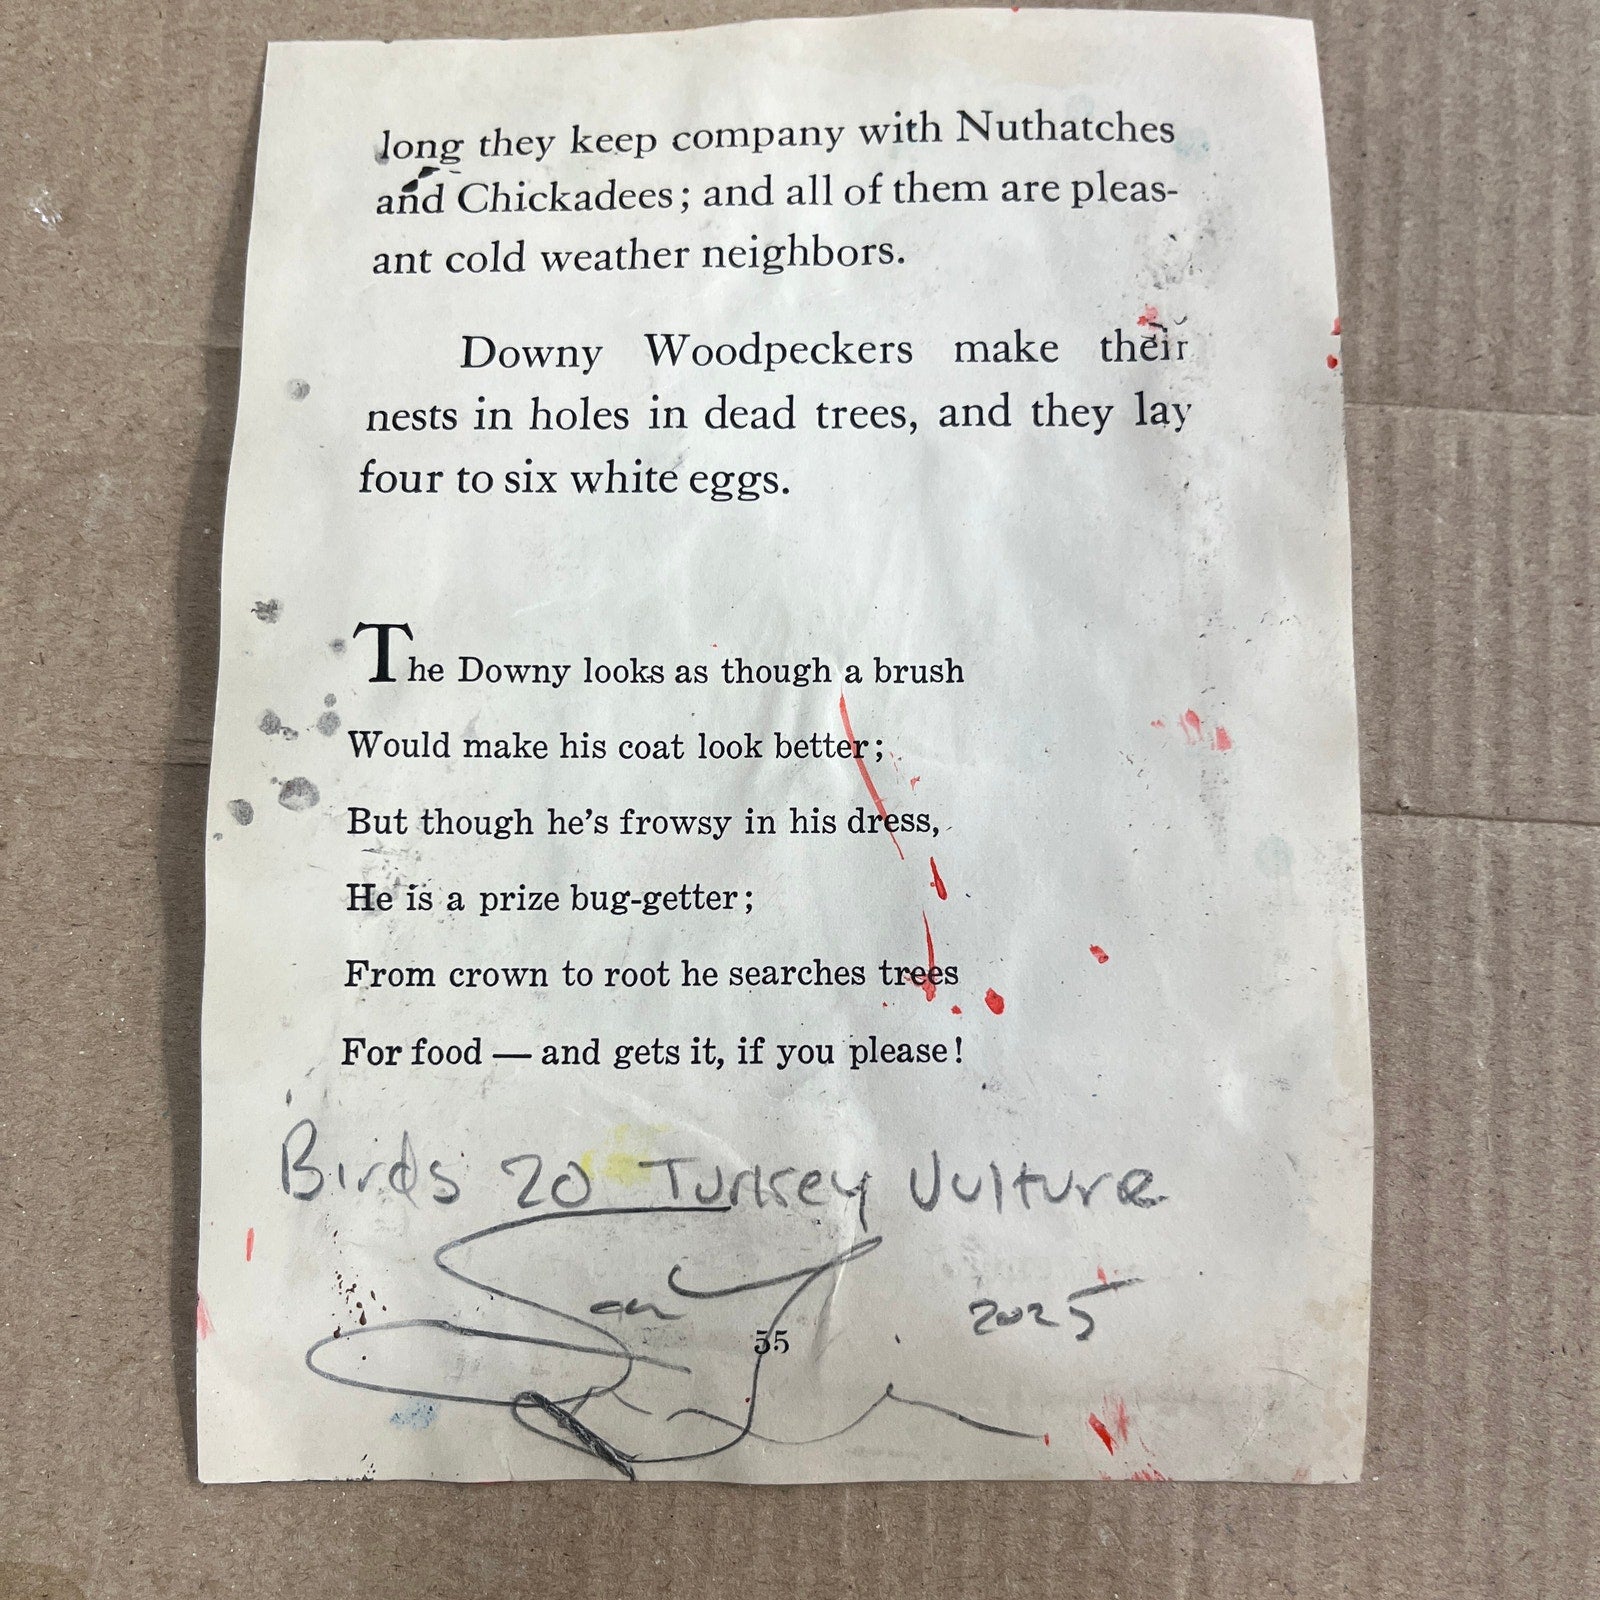 long they keep company with Nuthatches
and Chickadees; and all of them are pleas-
ant cold weather neighbors.
Downy Woodpeckers make their
nests in holes in dead trees, and they lay
four to six white eggs.
The Downy looks as though a brush
Would make his coat look better;
But though he's frowsy in his dress,
He is a prize bug-getter;
From crown to root he searches trees
For food — and gets it, if you please!
Birds 20 Turkey Vulture
2025
55